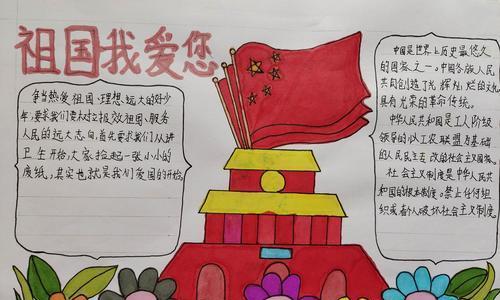 祖国我爱您
争当热爱祖国、理想远大的好少
年,要求我们要树立报效祖国、服务
人民的远大志向,首先要求我们从讲
卫生开始,大家捡起一张小小的
废纸,其实也就是我们爱国的开始
中国是世界上历史最悠久
的国家之一。中国各族人民
共同创造了光辉灿烂的文化
具有光荣的革命传统。
中华人民共和国是工人阶级
领导的以工农联盟为基础
的人民民主专政的社会主义国家。
社会主义制度是中华人民共
和国的根本制度。禁止任何组
织或者个人破坏社会主义制度